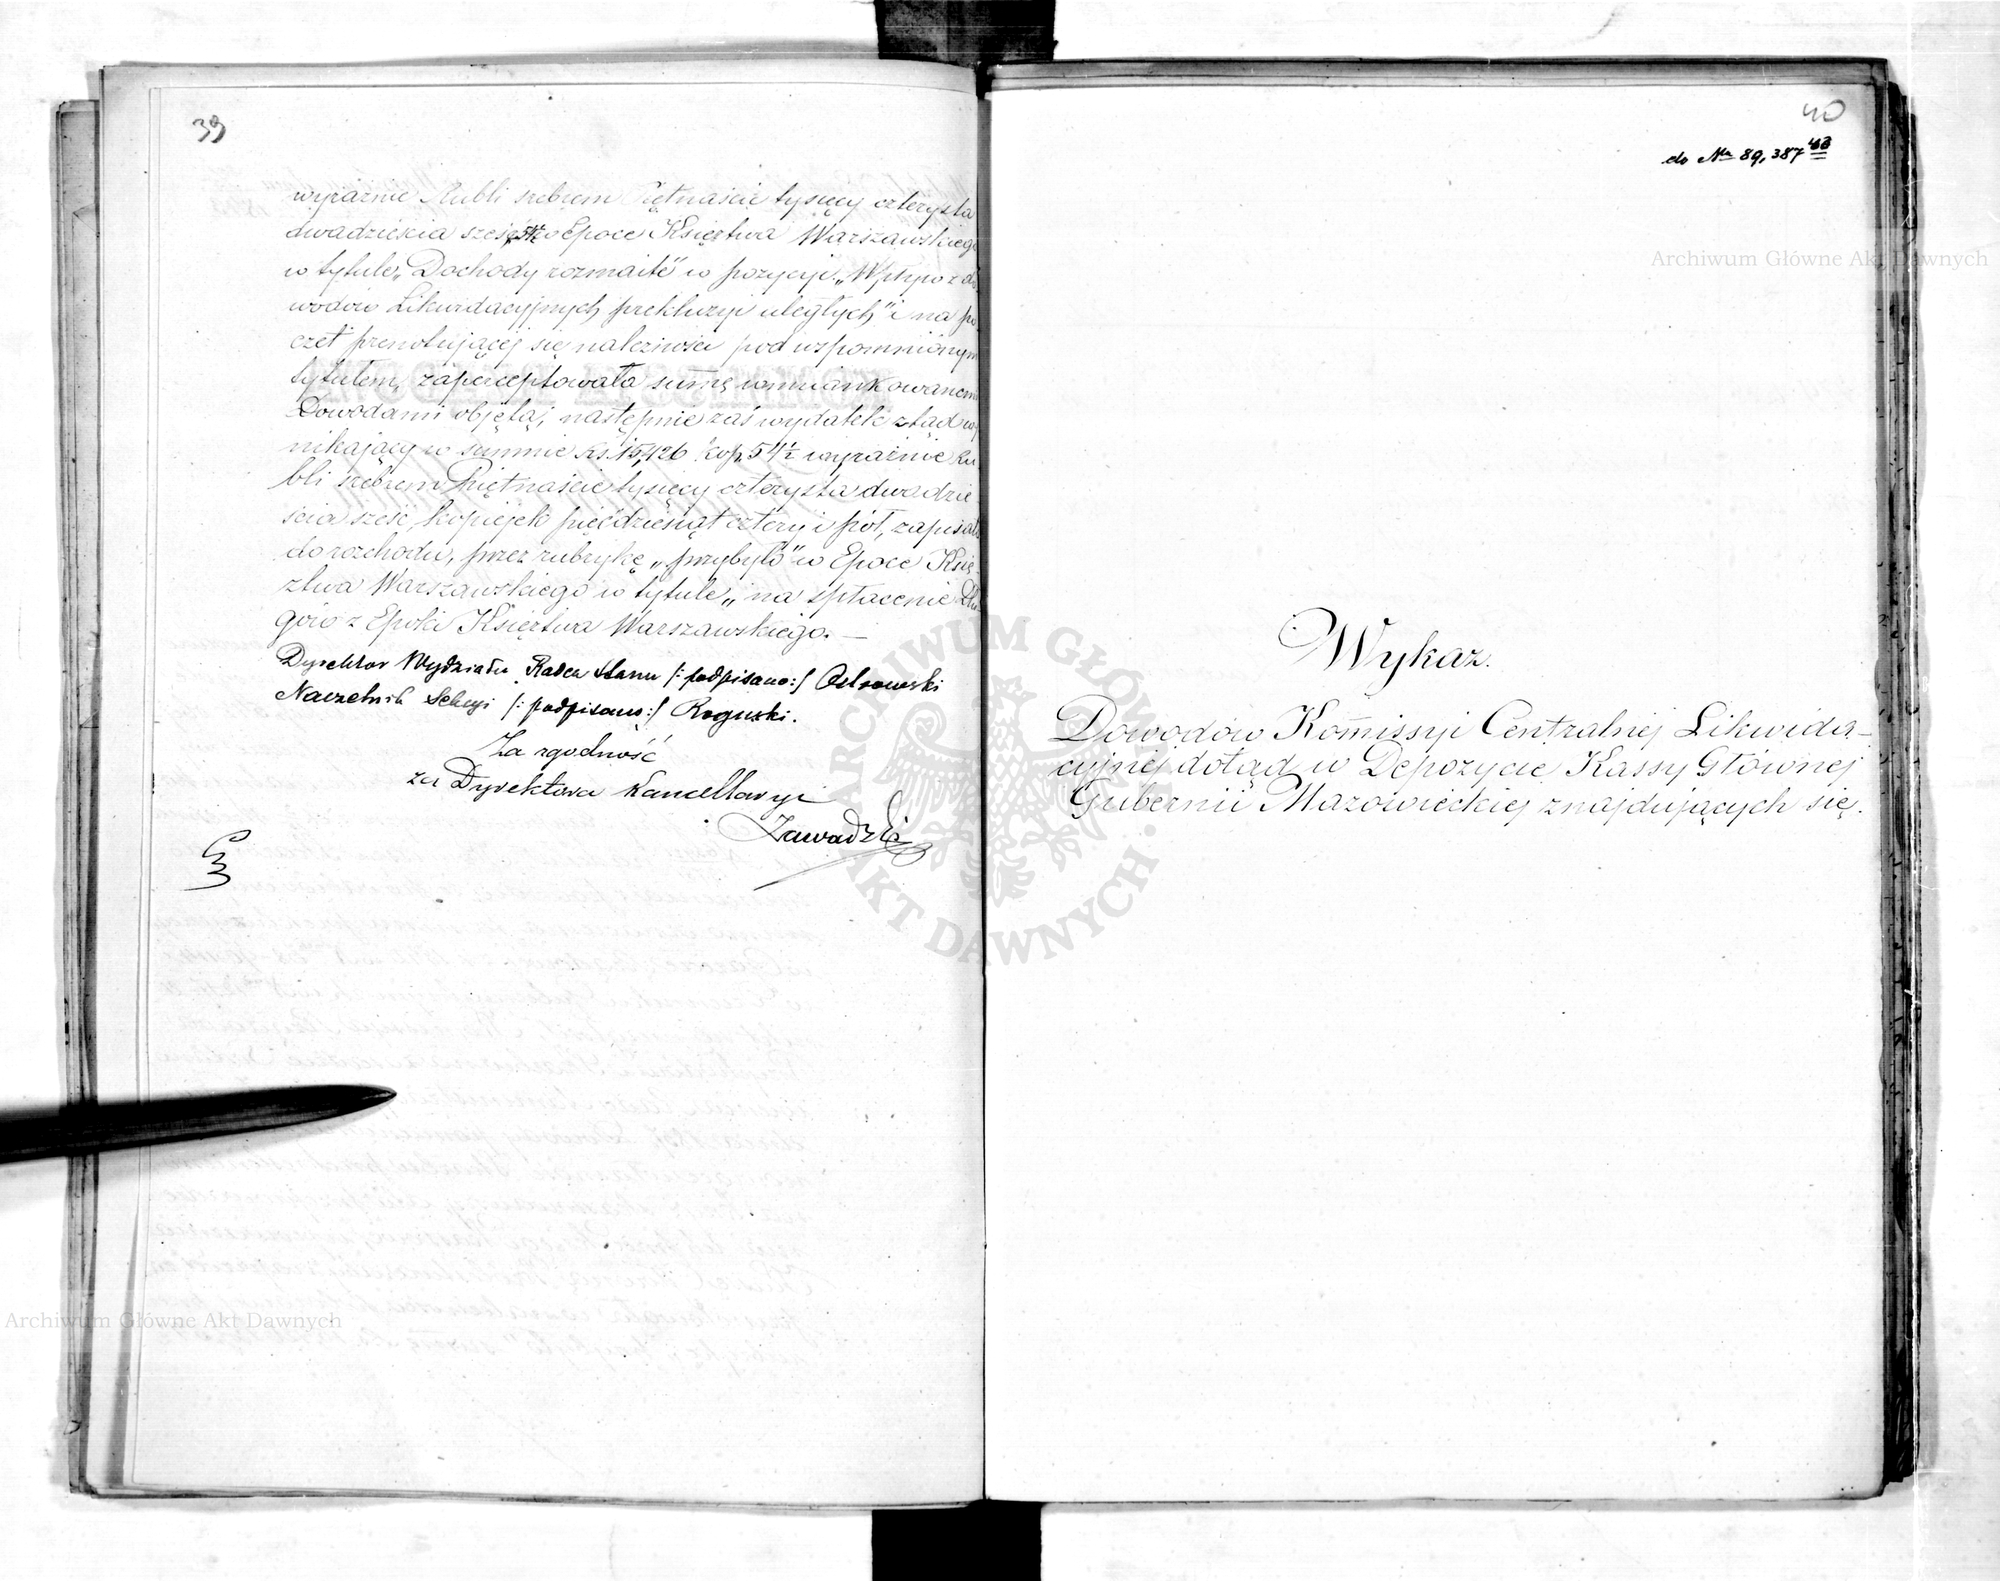 39
wyraźnie Rubli srebrem Piętnaście tysięcy czterysta
dwadzieścia sześć 54½ w Epoce Księstwa Warszawskiego
w tytule „Dochody rozmaite" w pozycyi „Wpływ z do-
wodów Likwidacyjnych prekluzyi uległych" i na po
czet przewidującej się należności pod wspomnionym
tytułem, zaperceptowała summę wzmiankowanemi
Dowodami objętą; następnie zaś wydatek ztąd wy
nikający w summie Rs. 15,426 kop. 54½ wyraźnie Ru
bli srebrem Piętnaście tysięcy czterysta dwadzie
ścia sześć, kopiejek pięćdziesiąt cztery i pół, zapisała
do rozchodu, przez rubrykę „przybyło" w Epoce Księ-
ztwa Warszawskiego w tytule „na spłacenie Dłu-
gów z Epoki Księztwa Warszawskiego. —
Dyrektor Wydziału Radca Stanu /: podpisano :/ Ostrowski
Naczelnik Sekcyi /: podpisano :/ Roguski.
Za zgodność
za Dyrektora Kancellaryi
Zawadzki
40
do Nr 89,387
Wykaz.
Dowodów Kommissyi Centralnej Likwida-
cyjnej dotąd w Depozycie Kassy Głównej
Gubernii Mazowieckiej znajdujących się.
Archiwum Główne Akt Dawnych
ARCHIWUM GŁÓWNE AKT DAWNYCH
Archiwum Główne Akt Dawnych